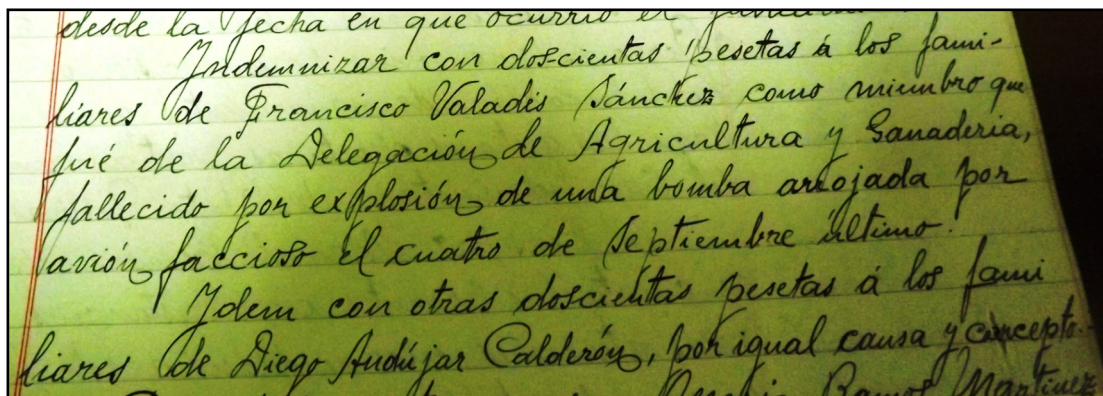 desde la fecha en que ocurrió el
Indemnizar con doscientas pesetas á los fami-
liares de Francisco Valadés Sánchez como miembro que
fué de la Delegación de Agricultura y Ganaderia,
fallecido por explosión de una bomba arrojada por
avión faccioso el cuatro de Septiembre último.
Idem con otras doscientas pesetas á los fami
liares de Diego Andújar Calderón, por igual causa y concepto.
Ramos Martinez